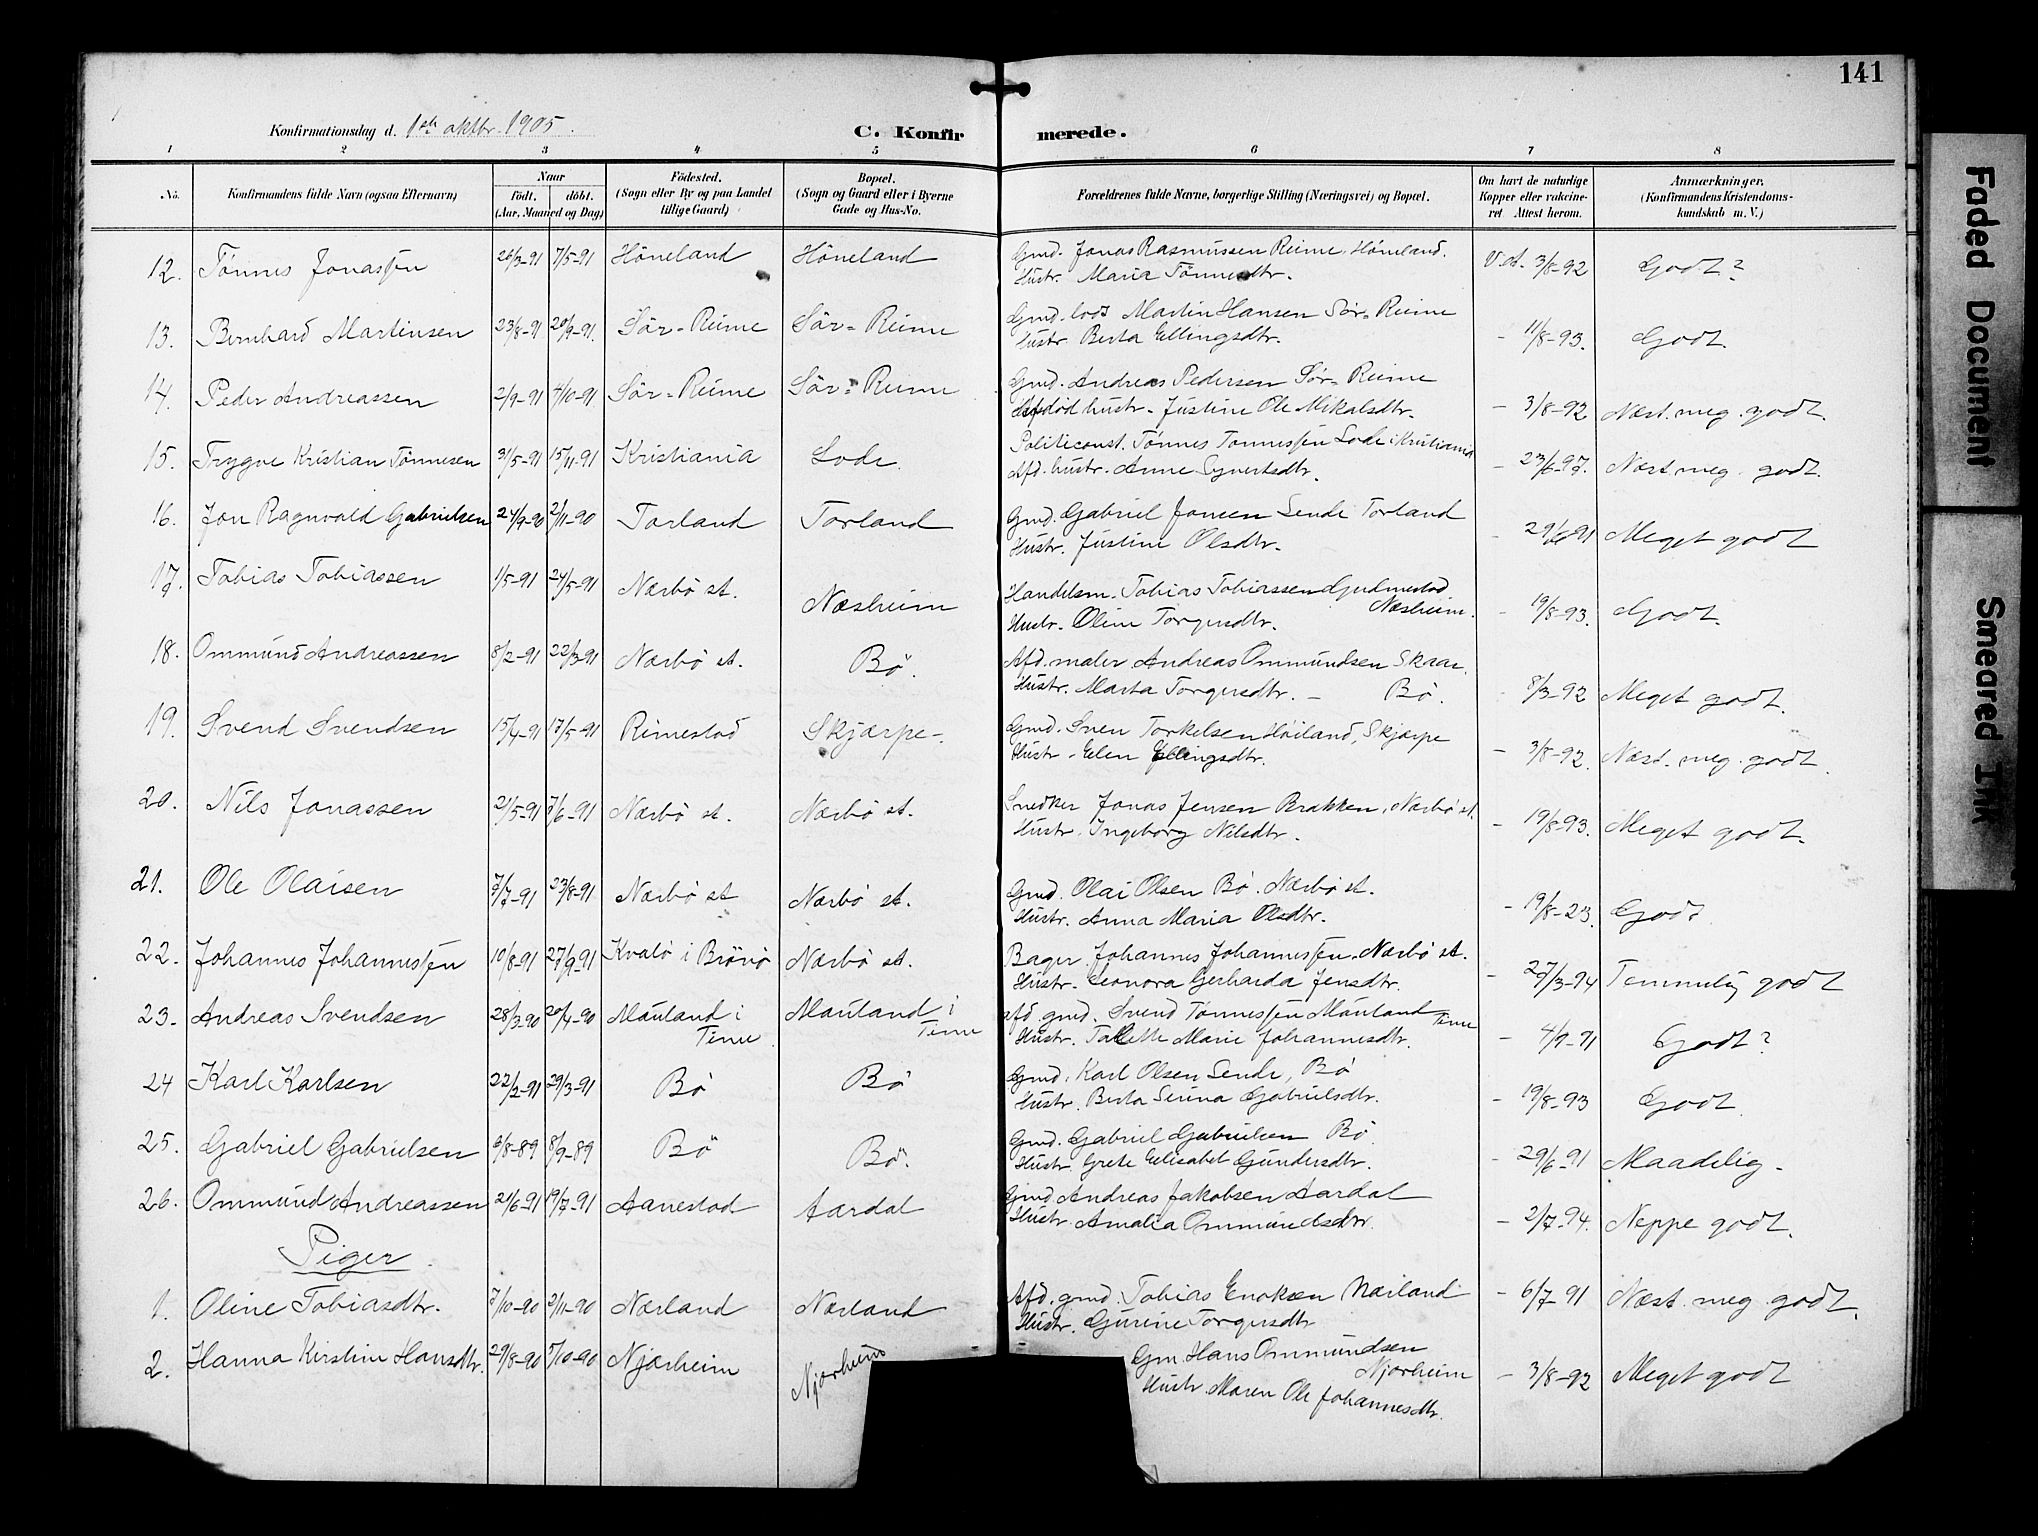 141
Konfirmationsdag d. 1ste oktbr. 1905.
C. Konfirmerede.
1 2 3 4 5 6 7 8
No. Konfirmandens fulde Navn (ogsaa Efternavn) Naar födt. döbt. (Aar, Maaned og Dag) Födested. (Sogn eller By og paa Landet tillige Gaard) Bopæl. (Sogn og Gaard eller i Byerne Gade og Hus-No. Forældrenes fulde Navne, borgerlige Stilling (Næringsvei) og Bopæl. Om havt de naturlige Kopper eller vakcineret Attest herom. Anmærkninger. (Konfirmandens Kristendomskundskab m. V.)
12. Tönnes Jonassen 26/3-91 7/5-91 Höneland Höneland Gmd. Jonas Rasmussen Reime, Höneland. V.at. 3/8-92 Godt?
Hustr. Maria Tönnesdtr.
13. Bernhard Martinsen 23/8-91 20/9-91. Sör-Reime Sör-Reime Gmd. lods Martin Hansen Sör-Reime - 11/8-93. Godt.
Hustr Berta Ellingsdtr.
14. Peder Andreassen 2/9-91 4/10-91. Sör-Reime Sör-Reime Gmd. Andreas Pedersen Sör-Reime - 3/8-92 Næst. meg. godt.
Afdöd hustr. Justine Ole Mikalsdtr.
15. Trygve Kristian Tönnesen 31/5-91 15/11-91 Kristiania Lode. Politiconst. Tönnes Tönnessen Lode i Kristiania - 23/6-97. Næst. meg. godt.
Afd. hustr. Anne Syvertsdtr.
16. Jon Ragnvald Gabrielsen 24/9-90 2/11-90 Torland Torland Gmd. Gabriel Jonsen Sende Torland - 29/6 91 Meget godt
Hustr. Justine Olsdtr.
17. Tobias Tobiassen 1/5-91 24/5-91 Nærbö st. Næsheim Handelsm. Tobias Tobiassen Gudmestad Næsheim. - 19/8-93. Godt
Hustr. Oline Torgersdtr.
18. Ommund Andreassen 8/2-91 22/3-91 Nærbö st. Bö. Afd. maler Andreas Ommundsen Skaar. - 8/3-92 Meget godt.
Hustr. Marta Torgersdtr. - Bö.
19. Svend Svendsen 15/4-91 17/5-91 Rimestad Skjærpe-. Gmd. Sven Torkelsen Höiland, Skjærpe - 3/8-92. Næst. meg. godt.
Hustr. Elen Ellingsdtr.
20. Nils Jonassen 21/5-91 7/6-91 Nærbö st. Nærbö st. Snedker Jonas Jensen Brakken, Nærbö st. - 19/8-93. Meget godt.
Hustr. Ingeborg Nilsdtr.
21. Ole Olaisen 7/7-91 23/8-91 Nærbö st Nærbö st. Gmd. Olai Olsen Bö. Nærbö st. - 19/8-23. Godt
Hustr. Anna Maria Olsdtr.
22. Johannes Johannessen 10/8-91 27/9-91 Kvalö i Brönö Nærbö st. Bager. Johannes Johannessen. Nærbö st. - 27/3-94 Temmelig godt
Hustr. Leonora Gerharda Jensdtr.
23. Andreas Svendsen 28/3-90 20/4-90 Mauland i Time Mauland i Time afd. gmd. Svend Tönnessen Mauland Time - 4/9-91 Godt?
Hustr. Talette Marie Johannesdtr.
24 Karl Karlsen 22/2-91 29/3-91 Bö Bö Gmd. Karl Olsen Sende, Bö - 19/8-93 Godt.
Hustr. Berta Serina Gabrielsdtr.
25. Gabriel Gabrielsen 6/8-89 8/9-89 Bö Bö. Gmd. Gabriel Gabrielsen Bö. - 29/6-91 Maadelig-
Hustr. Grete Elisabet Gundersdtr.
26. Ommund Andreassen 21/6-91 19/7-91 Aanestad Aardal Gmd Andreas Jakobsen Aardal - 2/7-94. Neppe godt.
Hustr. Amalia Ommundsdtr.
Piger.
1. Oline Tobiasdtr. 7/10-90 2/11-90 Nærland Nærland Afd. gmd. Tobias Enoksen Nærland - 6/7-91 Næst. meg. godt.
Hustr. Gurine Torgersdtr
2. Hanna Kirstine Hansdtr. 29/8-90 5/10-90 Njærheim Njærheim Gm Hans Ommundsen Njærheim - 3/8-92 Meget godt
Hustr Maren Ole Johannesdtr.
Faded Document
Smeared Ink